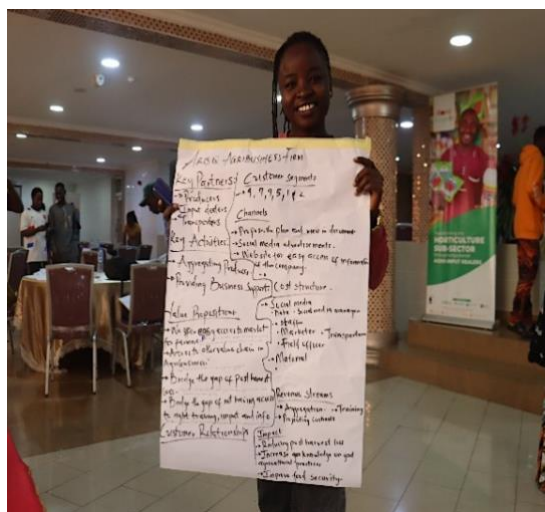 AGRIBUSINESS FIRM
Key Partners
→ Producers
→ Input dealers
→ Transporters
Key Activities
→ Aggregating Products
→ Providing Business Support
Value Proposition
→ access to market
for farmers
→ Access to other value chain in
Agribusiness
→ Bridge the gap of post harvest
loss
→ Bridge the gap of not having access
to right training, input and info
Customer Relationships
Customer Segments
Channels
→ Social media advertisements.
→ Website for easy access of information
of the company.
Cost structure
→ Social media
Data - Social media manager
→ Staffs
→ Marketer
→ Transportation
→ Field officer
→ Material
Revenue Streams
→ Aggregation
→ Training
Impact
→ Reducing post harvest loss
→ Increase knowledge on good
agricultural practices
→ Improve food security
HORTICULTURE
SUB-SECTOR